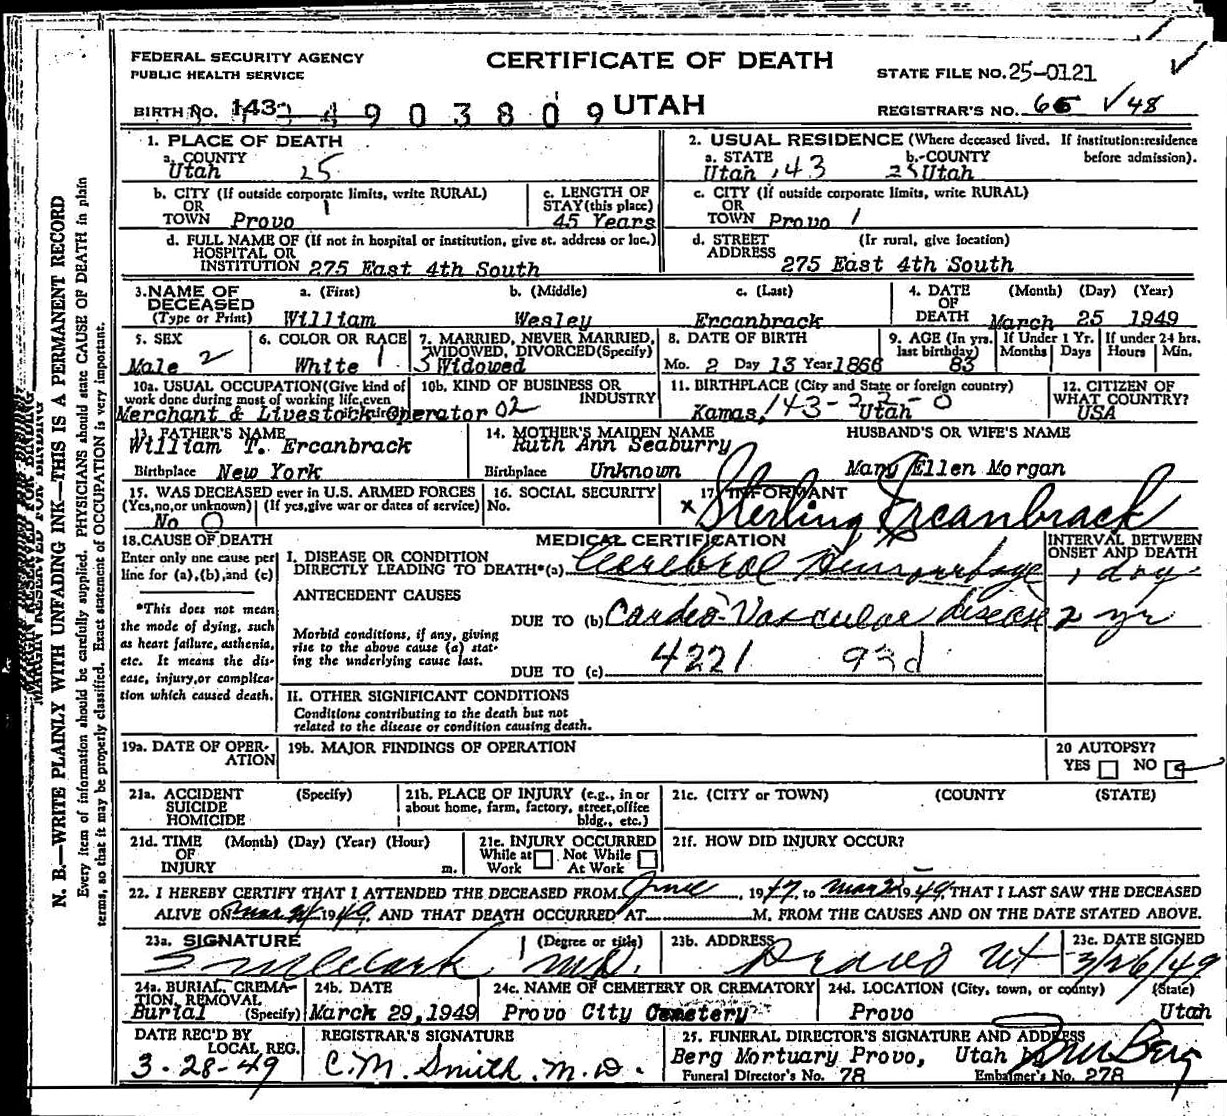 FEDERAL SECURITY AGENCY
PUBLIC HEALTH SERVICE
CERTIFICATE OF DEATH
STATE FILE NO. 25-0121
BIRTH NO. 143 4903809 UTAH
REGISTRAR'S NO. 65 √48
1. PLACE OF DEATH
a. COUNTY
Utah 25
2. USUAL RESIDENCE (Where deceased lived. If institution:residence before admission).
a. STATE b. COUNTY
Utah 143 25 Utah
b. CITY (If outside corporate limits, write RURAL)
OR
TOWN Provo 1
c. LENGTH OF
STAY (this place)
45 Years
c. CITY (If outside corporate limits, write RURAL)
OR
TOWN Provo 1
d. FULL NAME OF (If not in hospital or institution, give st. address or loc.)
HOSPITAL OR
INSTITUTION 275 East 4th South
d. STREET (Ir rural, give location)
ADDRESS
275 East 4th South
3. NAME OF DECEASED
(Type or Print)
a. (First) b. (Middle) c. (Last)
William Wesley Ercanbrack
4. DATE OF DEATH (Month) (Day) (Year)
March 25 1949
5. SEX
Male 2
6. COLOR OR RACE
White 1
7. MARRIED, NEVER MARRIED,
WIDOWED, DIVORCED (Specify)
3 Widowed
8. DATE OF BIRTH
Mo. 2 Day 13 Year 1866
9. AGE (In yrs. last birthday)
83
If Under 1 Yr. Months Days
If under 24 hrs. Hours Min.
10a. USUAL OCCUPATION (Give kind of
work done during most of working life, even
Merchant & Livestock Operator 02
10b. KIND OF BUSINESS OR
INDUSTRY
11. BIRTHPLACE (City and State or foreign country)
Kamas, 143-22-0 Utah
12. CITIZEN OF
WHAT COUNTRY?
USA
13. FATHER'S NAME
William T. Ercanbrack
Birthplace New York
14. MOTHER'S MAIDEN NAME
Ruth Ann Seaburry
Birthplace Unknown
HUSBAND'S OR WIFE'S NAME
Mary Ellen Morgan
15. WAS DECEASED ever in U.S. ARMED FORCES
(Yes, no, or unknown) (If yes, give war or dates of service)
No 0
16. SOCIAL SECURITY
No.
17. INFORMANT
x Sterling Ercanbrack
18. CAUSE OF DEATH
Enter only one cause per
line for (a), (b), and (c)
*This does not mean
the mode of dying, such
as heart failure, asthenia,
etc. It means the dis-
ease, injury, or complica-
tion which caused death.
MEDICAL CERTIFICATION
I. DISEASE OR CONDITION
DIRECTLY LEADING TO DEATH*(a) Cerebral Hemorrhage
INTERVAL BETWEEN
ONSET AND DEATH
1 day
ANTECEDENT CAUSES
DUE TO (b) Cardio-Vascular disease 2 yr
Morbid conditions, if any, giving
rise to the above cause (a) stat-
ing the underlying cause last.
4221 93d
DUE TO (c)
II. OTHER SIGNIFICANT CONDITIONS
Conditions contributing to the death but not
related to the disease or condition causing death.
19a. DATE OF OPER-
ATION
19b. MAJOR FINDINGS OF OPERATION
20 AUTOPSY?
YES NO
21a. ACCIDENT (Specify)
SUICIDE
HOMICIDE
21b. PLACE OF INJURY (e.g., in or
about home, farm, factory, street, office
bldg., etc.)
21c. (CITY or TOWN) (COUNTY) (STATE)
21d. TIME (Month) (Day) (Year) (Hour)
OF
INJURY m.
21e. INJURY OCCURRED
While at Work Not While At Work
21f. HOW DID INJURY OCCUR?
22. I HEREBY CERTIFY THAT I ATTENDED THE DECEASED FROM June, 1947, to Mar 25 1949, THAT I LAST SAW THE DECEASED
ALIVE ON Mar 24 1949, AND THAT DEATH OCCURRED AT M, FROM THE CAUSES AND ON THE DATE STATED ABOVE.
23a. SIGNATURE (Degree or title)
Clark M.D.
23b. ADDRESS
Provo Ut
23c. DATE SIGNED
3/26/49
24a. BURIAL, CREMA-
TION, REMOVAL
Burial (Specify)
24b. DATE
March 29, 1949
24c. NAME OF CEMETERY OR CREMATORY
Provo City Cemetery
24d. LOCATION (City, town, or county) (State)
Provo Utah
DATE REC'D BY
LOCAL REG.
3-28-49
REGISTRAR'S SIGNATURE
C. M. Smith. M. D.
25. FUNERAL DIRECTOR'S SIGNATURE AND ADDRESS
Berg Mortuary Provo, Utah Berg
Funeral Director's No. 78 Embalmer's No. 278
MARGIN RESERVED FOR BINDING
N. B.—WRITE PLAINLY WITH UNFADING INK—THIS IS A PERMANENT RECORD
Every item of information should be carefully supplied. PHYSICIANS should state CAUSE OF DEATH in plain
terms, so that it may be properly classified. Exact statement of OCCUPATION is very important.